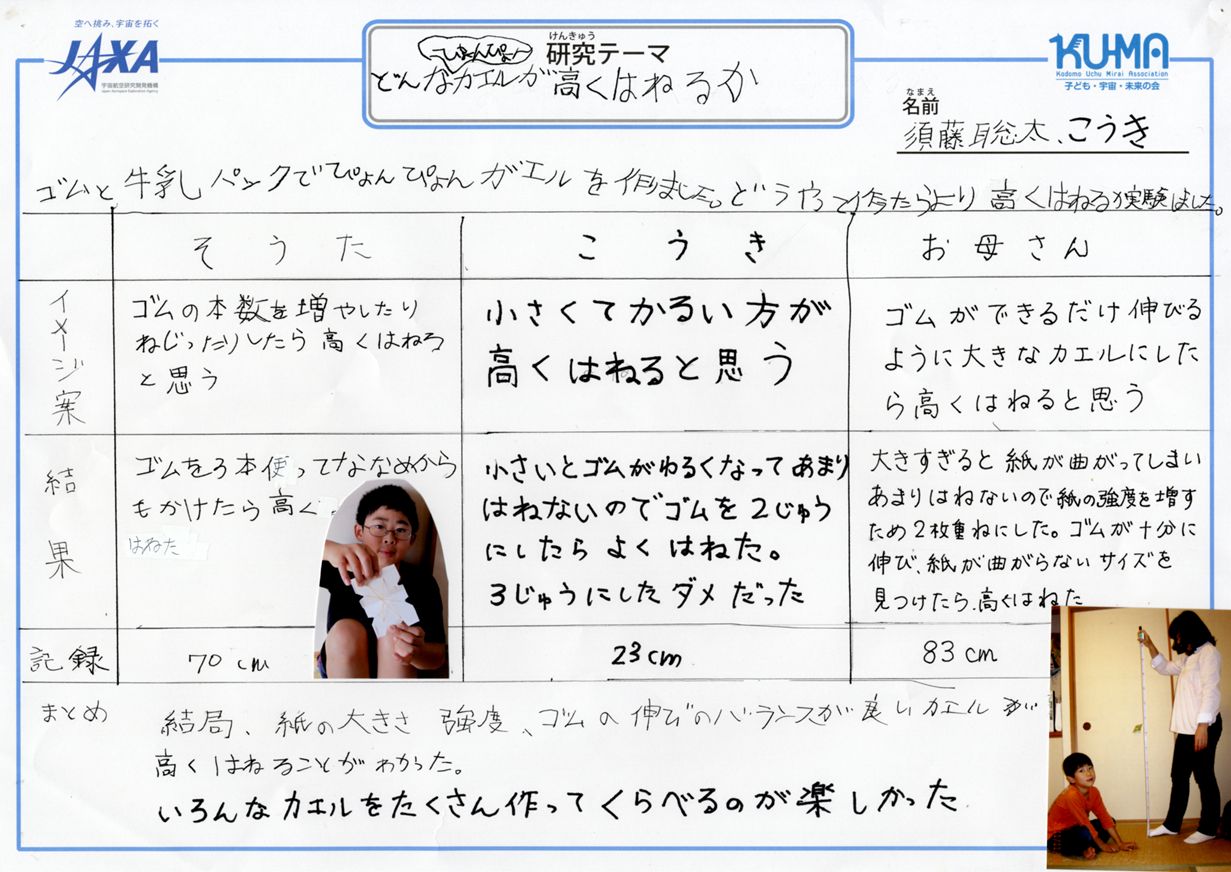 空へ挑み、宇宙を拓く
JAXA
宇宙航空研究開発機構
Japan Aerospace Exploration Agency
けんきゅう
研究テーマ
ぴょんぴょん
どんなカエルが高くはねるか
KU-MA
Kodomo Uchu Mirai Association
子ども・宇宙・未来の会
なまえ
名前
須藤聡太、こうき
ゴムと牛乳パックでぴょんぴょんガエルを作りました。どうやって作たらより高くはねるか実験しました。
そうた
こうき
お母さん
イメージ案
ゴムの本数を増やしたり
ねじったりしたら高くはねる
と思う
小さくてかるい方が
高くはねると思う
ゴムができるだけ伸びる
ように大きなカエルにした
ら高くはねると思う
結果
ゴムを3本使ってななめから
もかけたら高く
はねた
小さいとゴムがゆるくなってあまり
はねないのでゴムを2じゅう
にしたらよくはねた。
3じゅうにしたダメだった
大きすぎると紙が曲がってしまい
あまりはねないので紙の強度を増す
ため2枚重ねにした。ゴムが十分に
伸び、紙が曲がらないサイズを
見つけたら、高くはねた
記録
70cm
23cm
83cm
まとめ
結局、紙の大きさ 強度、ゴムの伸びのバランスが良いカエルが
高くはねることがわかった。
いろんなカエルをたくさん作ってくらべるのが楽しかった